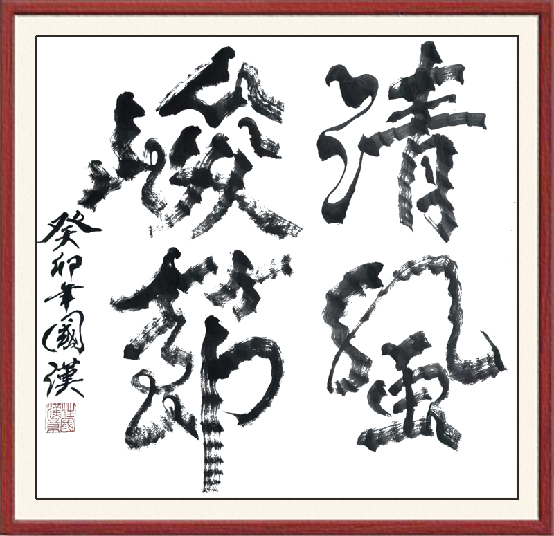 清風
峻節
癸卯年國漢